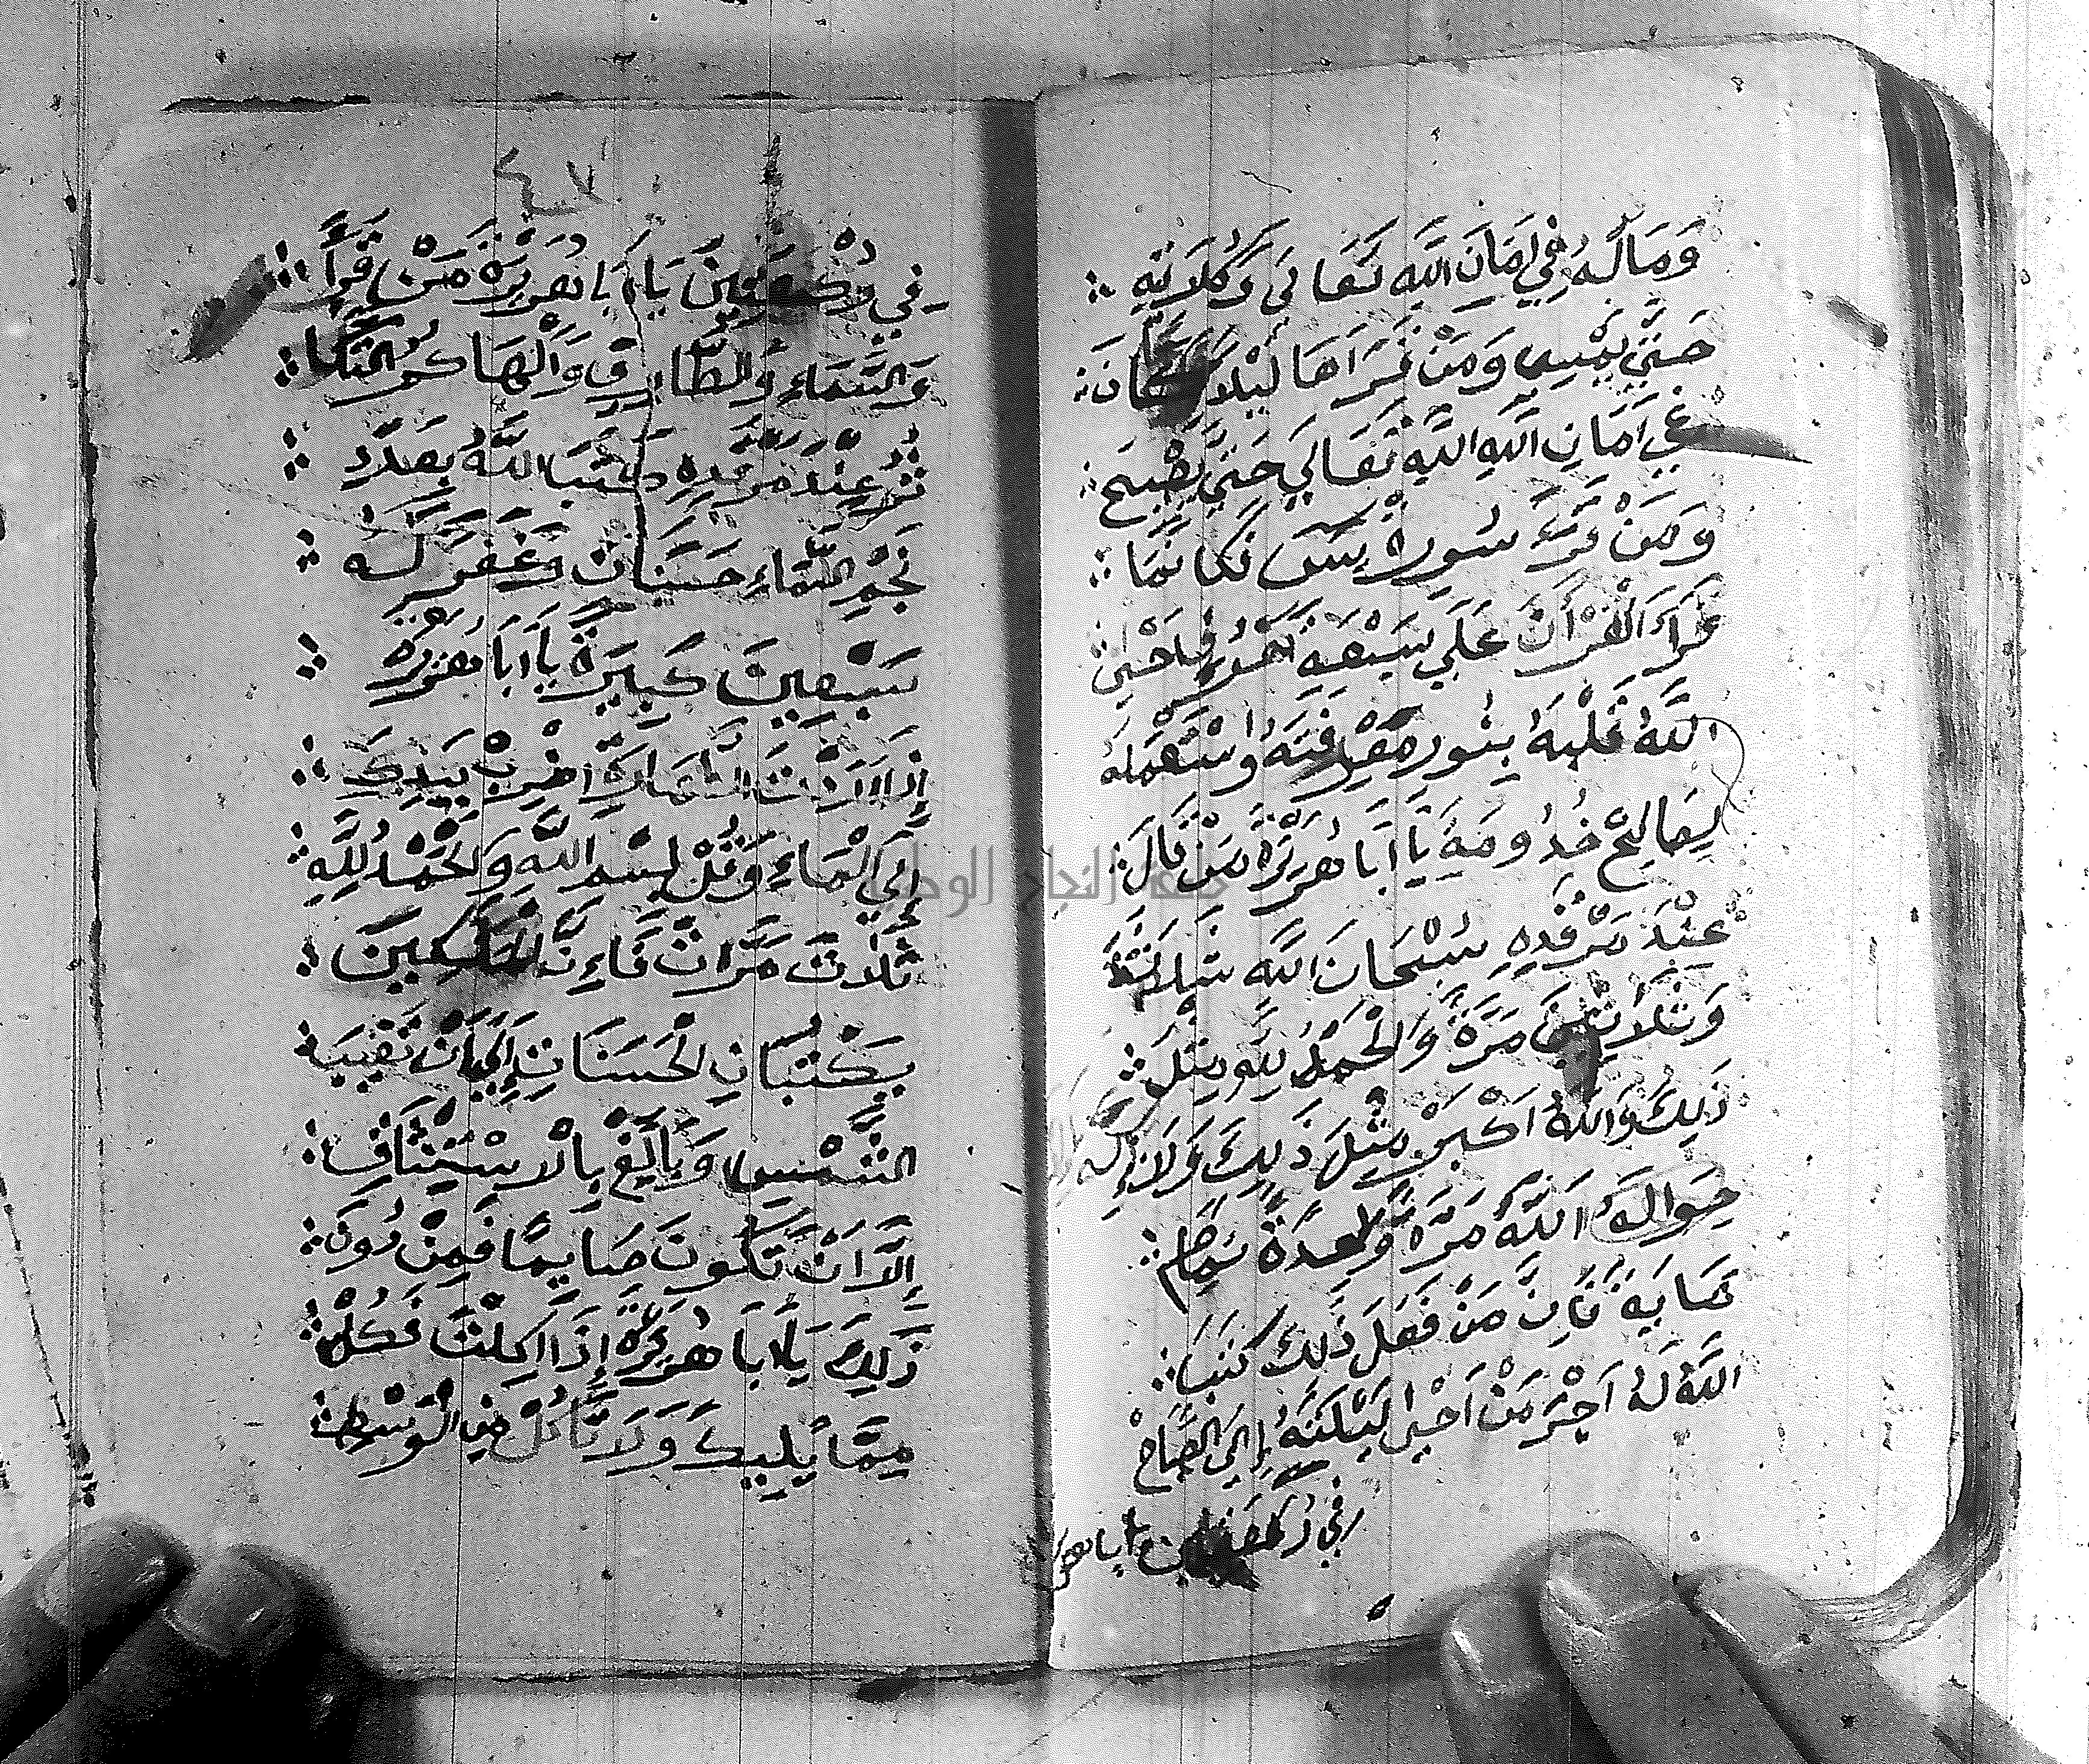 وَمَالُهُ فِي اَمَانَ اللَّهِ تَعَالَى وَكَلَايَتِهِ
حَتَّى يُمْسِي وَمَنْ قَرَاهَا لَيْلًا كَانَ
فِي اَمَانِ اللَّهِ اللَّهِ تَعَالَي حَتَّي يُصْبِحَ
وَمَنْ قَرَءَ سُورَةُ يسَ فَكَانَّمَا
قَرَاءَ الْقُرْآنَ عَلَي سَبْعَةِ اَحْرُفٍ اَحْيَ
اللَّهُ قَلْبَهُ بِنُورِ مَعْرِفَتِهُ وَاسْتَعْمَلَهُ
لِصَالِحْ خُدُومَهِ يَا اَبَا هُرَيْرَةْ مَنْ قَالَ
عِنْدَ مَرْقَدِهِ سُبْحَانَ اللَّهِ ثَلَاثَةً
وَثَلَاثِينَ مَرَّةً وَالْحَمْدُ لِلَّهِ مِثْلَ
ذَلِكَ وَاللَّهُ اَكْبَرْ مِثْلَ ذَلِكَ وَلَا إِلَهَ إِلَّا
هُوَ اللَّهُ مَرَّةً وَاحِدَةً تَمَامْ
مَايَهْ فَانَّ مَنْ فَعَلَ ذَلِكَ كَتَبَ
اللَّهُ لَهُ اَجْرَ مَنْ اَحْيَ لَيْلَتَهُ إِلَى الصَّبَاحْ
فِي رَكْعَتَيْنِ يا ابا هر
٤٧
فِي رَكْعَتَيْنِ يَا اَبَا هُرَيْرَةْ مَنْ قَرَأَ
وَالسَّمَاءِ وَالطَّارِقِ وَاَلْهَاكُمُ التَّكَا
ثُرُ عِنْدَ مَرْقَدِهِ كَتَبَ اللَّهُ بِعَدَدِ
نَجْمِ السَّمَاءِ حَسَنَاتْ وَغَفَرَ لَه
سَبْعِينَ كَبِيرَةً يَا اَبَا هُرَيْرَةْ
إِذَا اَرَدْتَ الطَّهَارَةَ اضْرِبْ بِيَدِكَ
اِلَي الْمَاءِ وَقُلْ بِسْمِ اللَّهِ وَالْحَمْدُ لِلَّهِ
ثَلَاثَ مَرَّاتْ فَاءِنَّ الْمَلَكَيْنَ
يَكْتُبَانِ الْحَسَنَاتِ إِلَيَ اَنْ تَغِيبَ
الشَّمْسِ وَبَالِغْ بِالْاِسْتِنْثَاقِ
إِلَّا اَنْ تَكُونَ صَايِمًا فَمِنْ دُونَ
ذَلِكَ يَا اَبَا هُرَيْرَةْ إِذَا اَكَلْتَ فَكُلْ
مِمَّا يَلِيكَ وَلَا تَاكُلْ مِنِ الْوَسْطِ
جامعة النجاح الوطنية